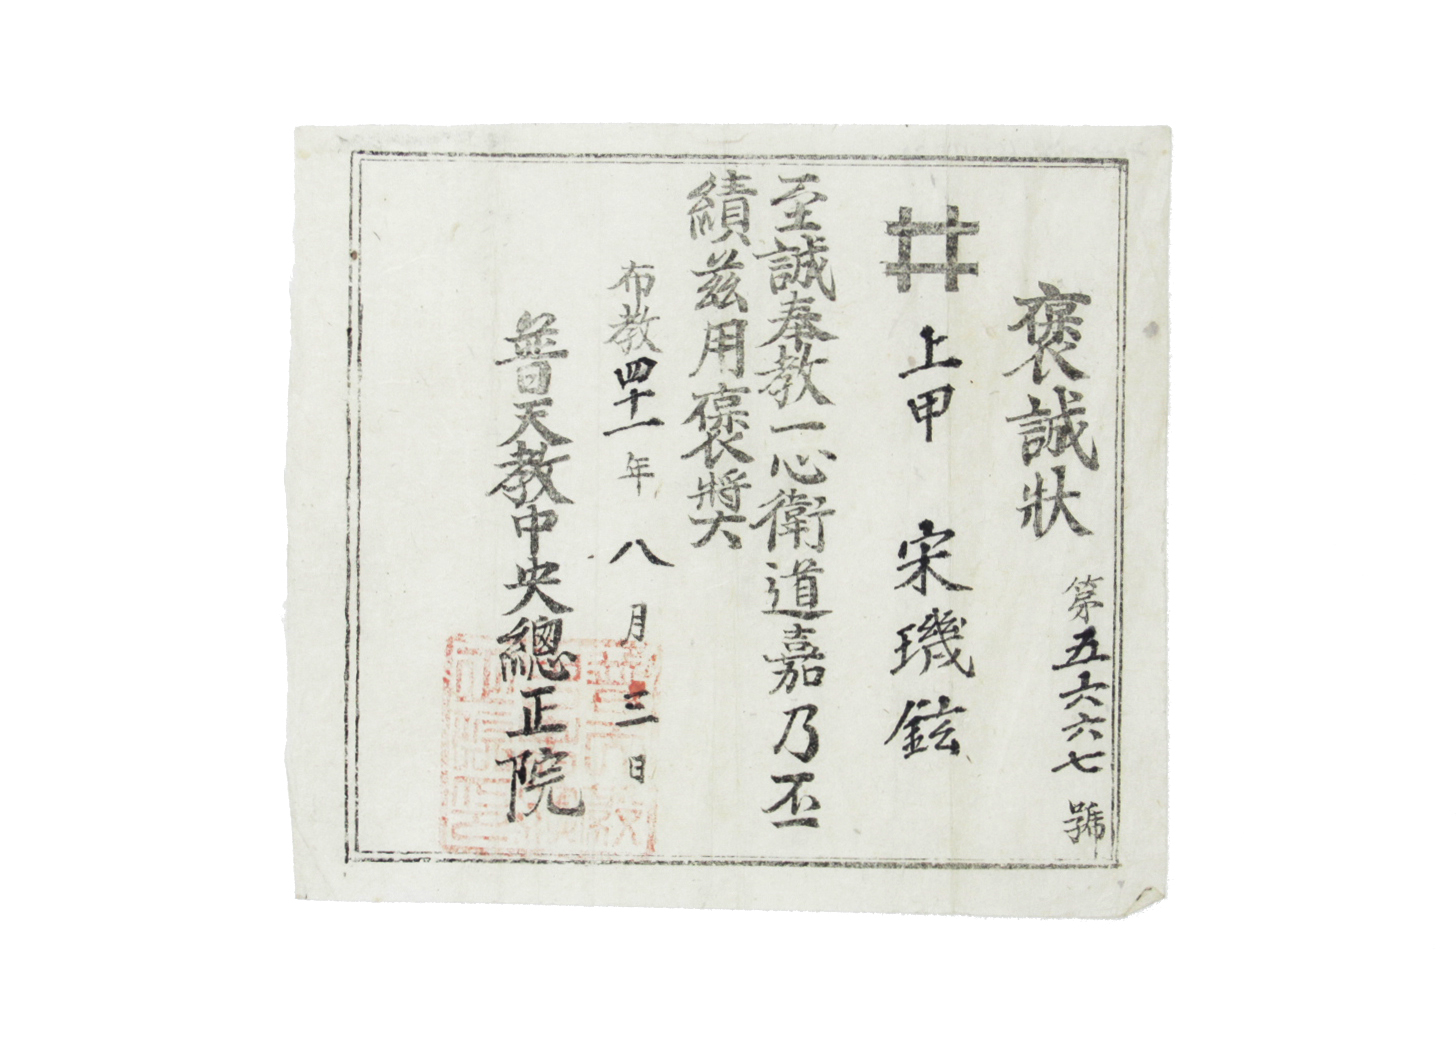 褒誠狀
第五六六七號
井
上甲 宋璣鉉
至誠奉教一心衛道嘉乃丕
績茲用褒奬
布教四十一年八月三日
普天教中央總正院